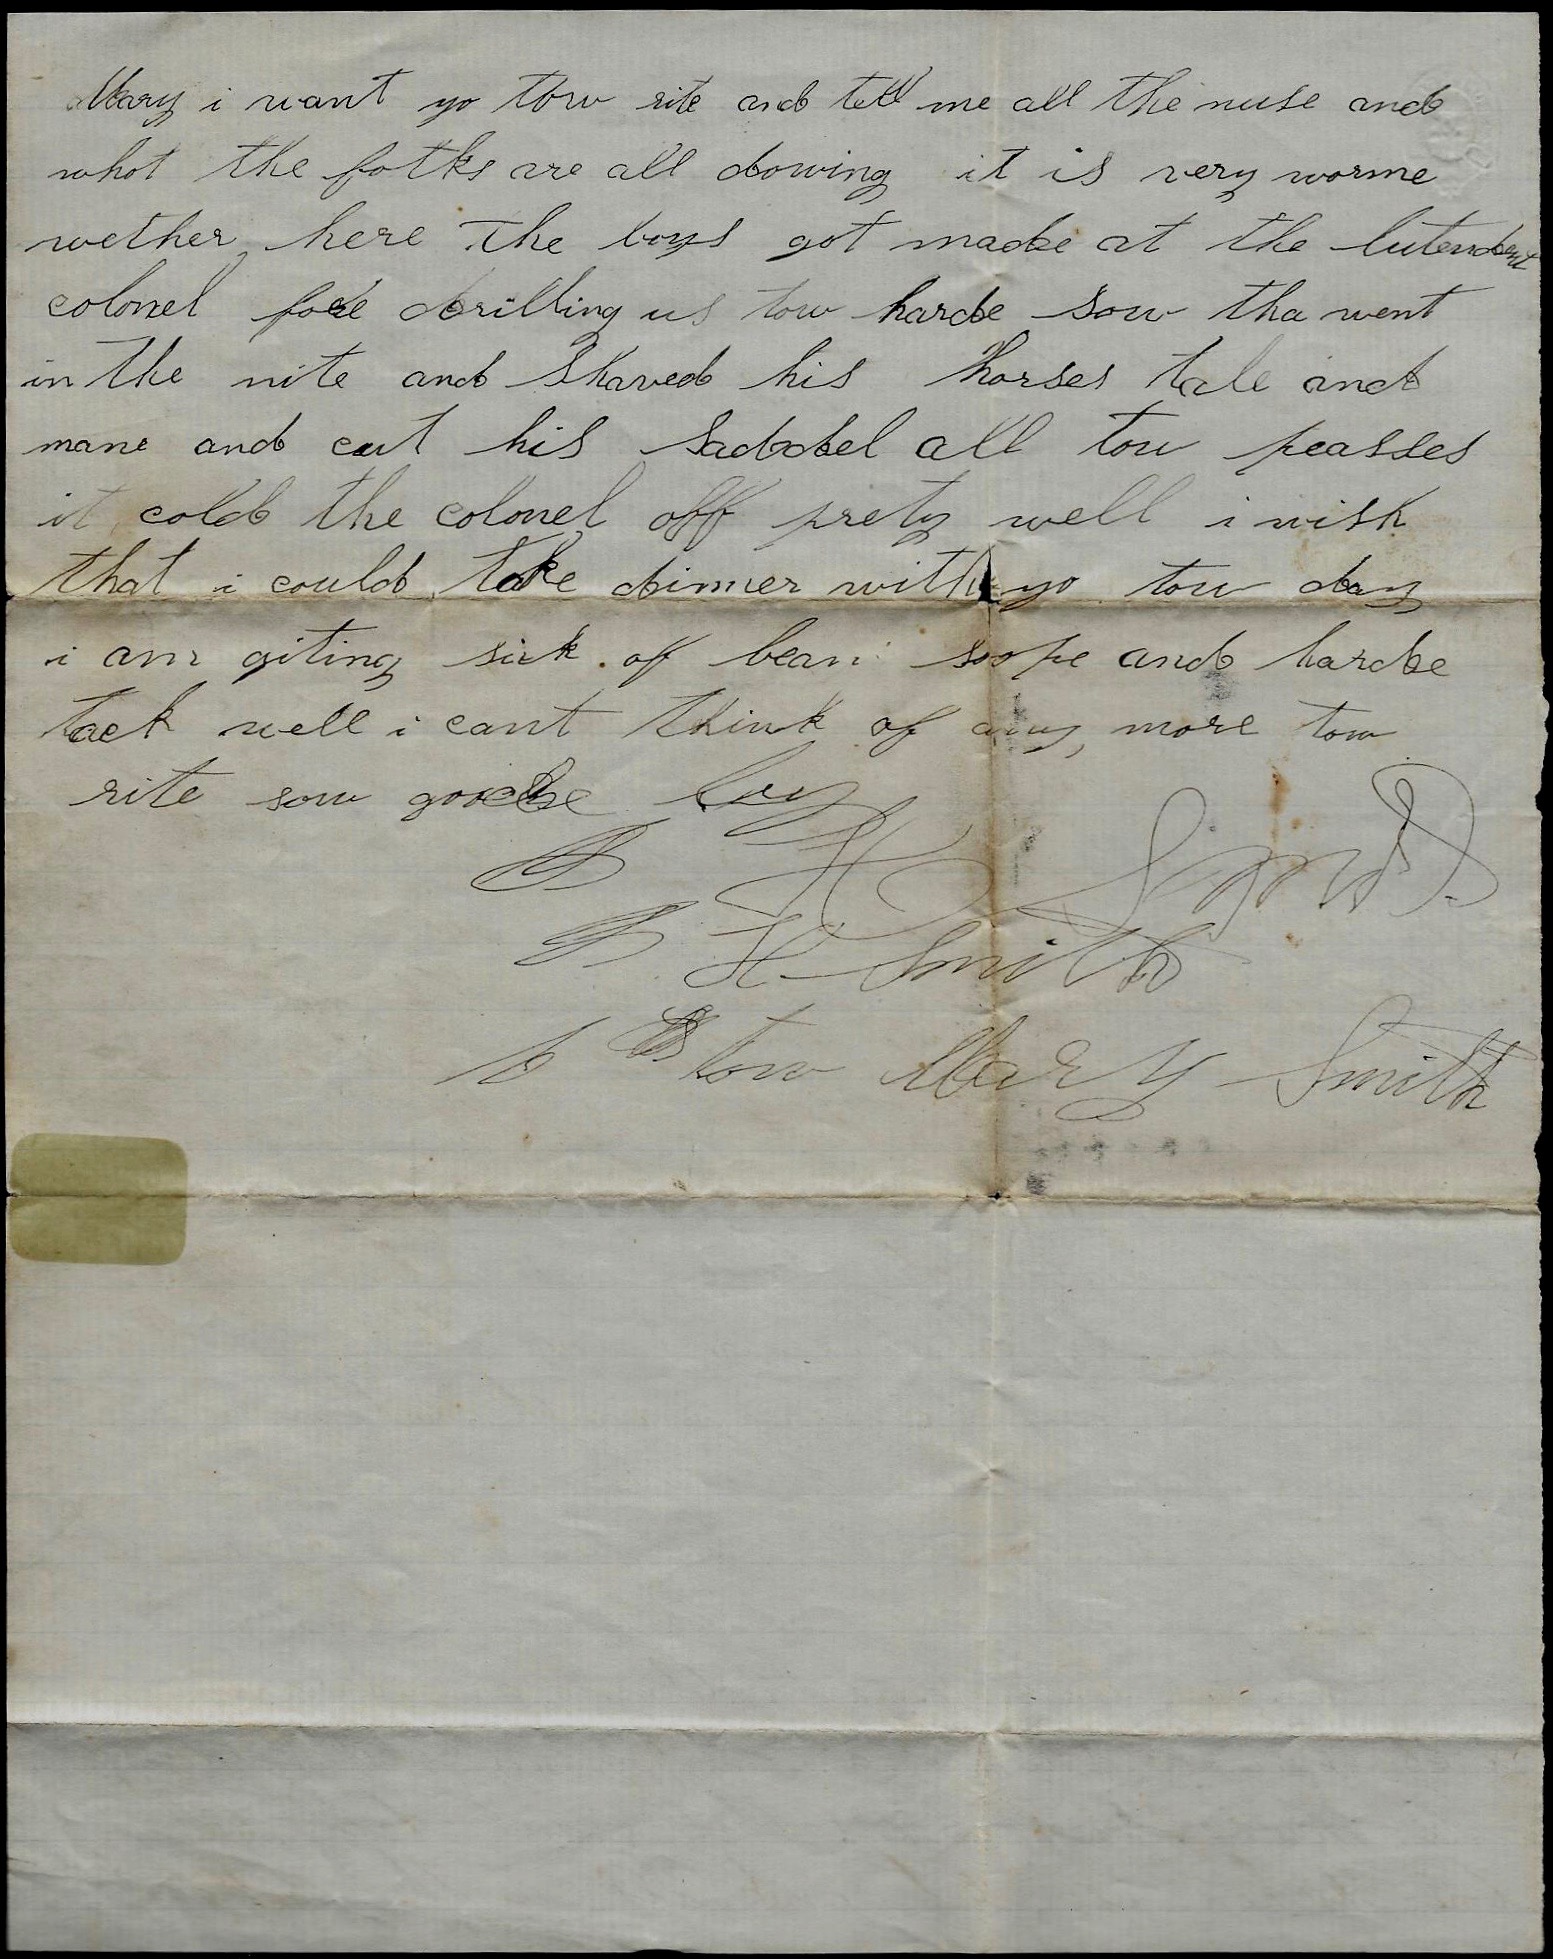 Mary i want yo tow rite and tell me all the nuse and
whot the folks are all dowing it is very worme
wether here The boys got made at the lutendent
colonel fore drilling us tow harde sow tha went
in the nite and shaved his horses tale and
mane and cut his saddel all tow peasses
it cold the colonel off prety well i wish
that i could take dinner with yo tow day
i am giting sick of bean sope and harde
tack well i cant think of any more tow
rite sow goode by
B H Smith
B H Smith
tow Mary Smith